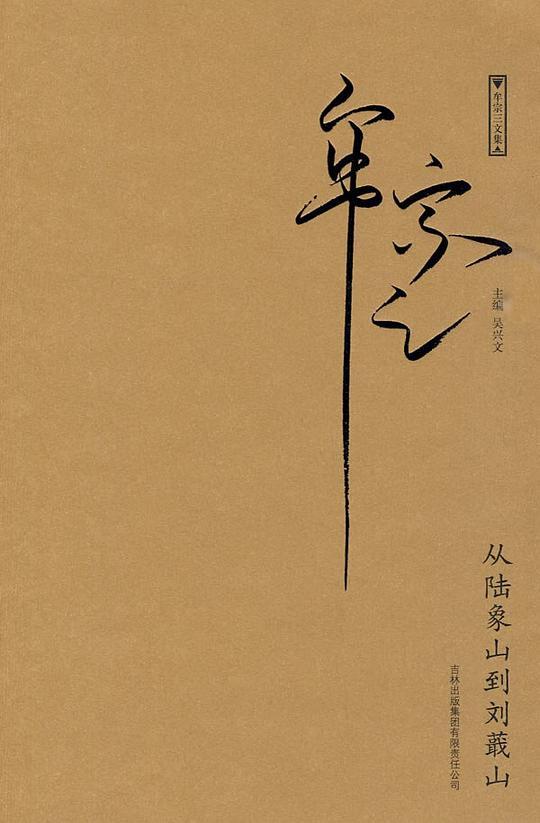 牟宗三文集
主编 吴兴文
牟宗三
从陆象山到刘蕺山
吉林出版集团有限责任公司